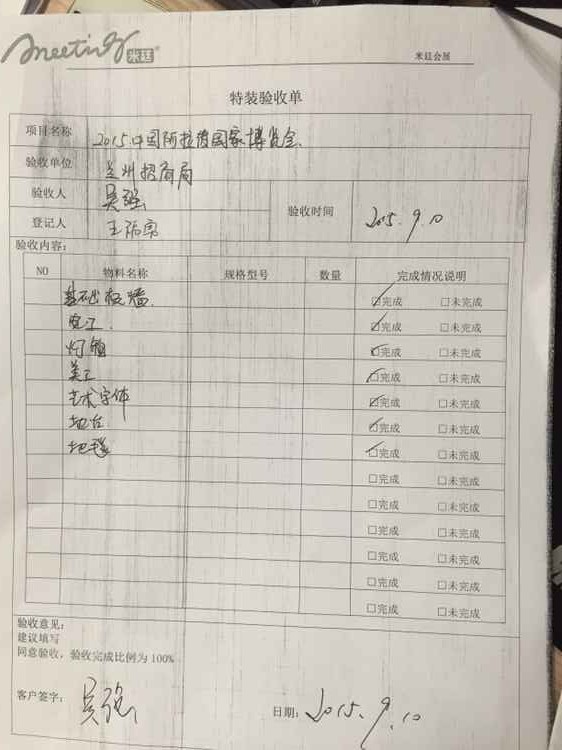 meeting 米廷
米廷会展
特装验收单
项目名称 2015中国阿拉伯国家博览会
验收单位 兰州招商局
验收人 吴强 验收时间 2015.9.10
登记人
验收内容:
NO 物料名称 规格型号 数量 完成情况说明
基础板墙 ☑完成 □未完成
电工 ☑完成 □未完成
灯箱 ☑完成 □未完成
美工 ☑完成 □未完成
艺术字体 ☑完成 □未完成
地台 ☑完成 □未完成
地毯 ☑完成 □未完成
□完成 □未完成
□完成 □未完成
□完成 □未完成
□完成 □未完成
□完成 □未完成
□完成 □未完成
验收意见:
建议填写
同意验收，验收完成比例为 100%
客户签字: 吴强 日期: 2015.9.10